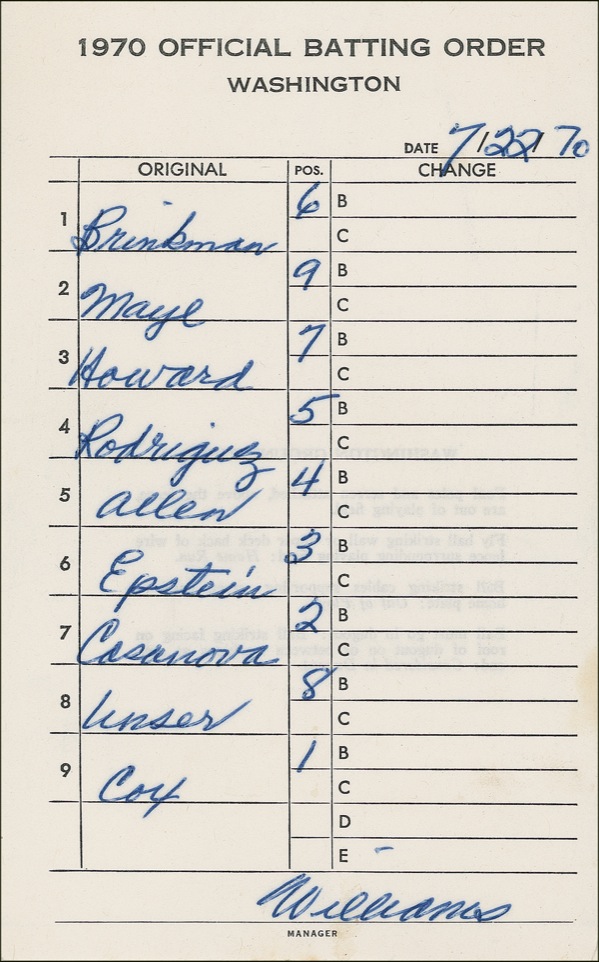 1970 OFFICIAL BATTING ORDER
WASHINGTON
DATE 7/22/70
ORIGINAL POS. CHANGE
1 Brinkman 6 B
C
2 Maye 9 B
C
3 Howard 7 B
C
4 Rodriguez 5 B
C
5 Allen 4 B
C
6 Epstein 3 B
C
7 Casanova 2 B
C
8 Unser 8 B
C
9 Cox 1 B
C
D
E -
Williams
MANAGER